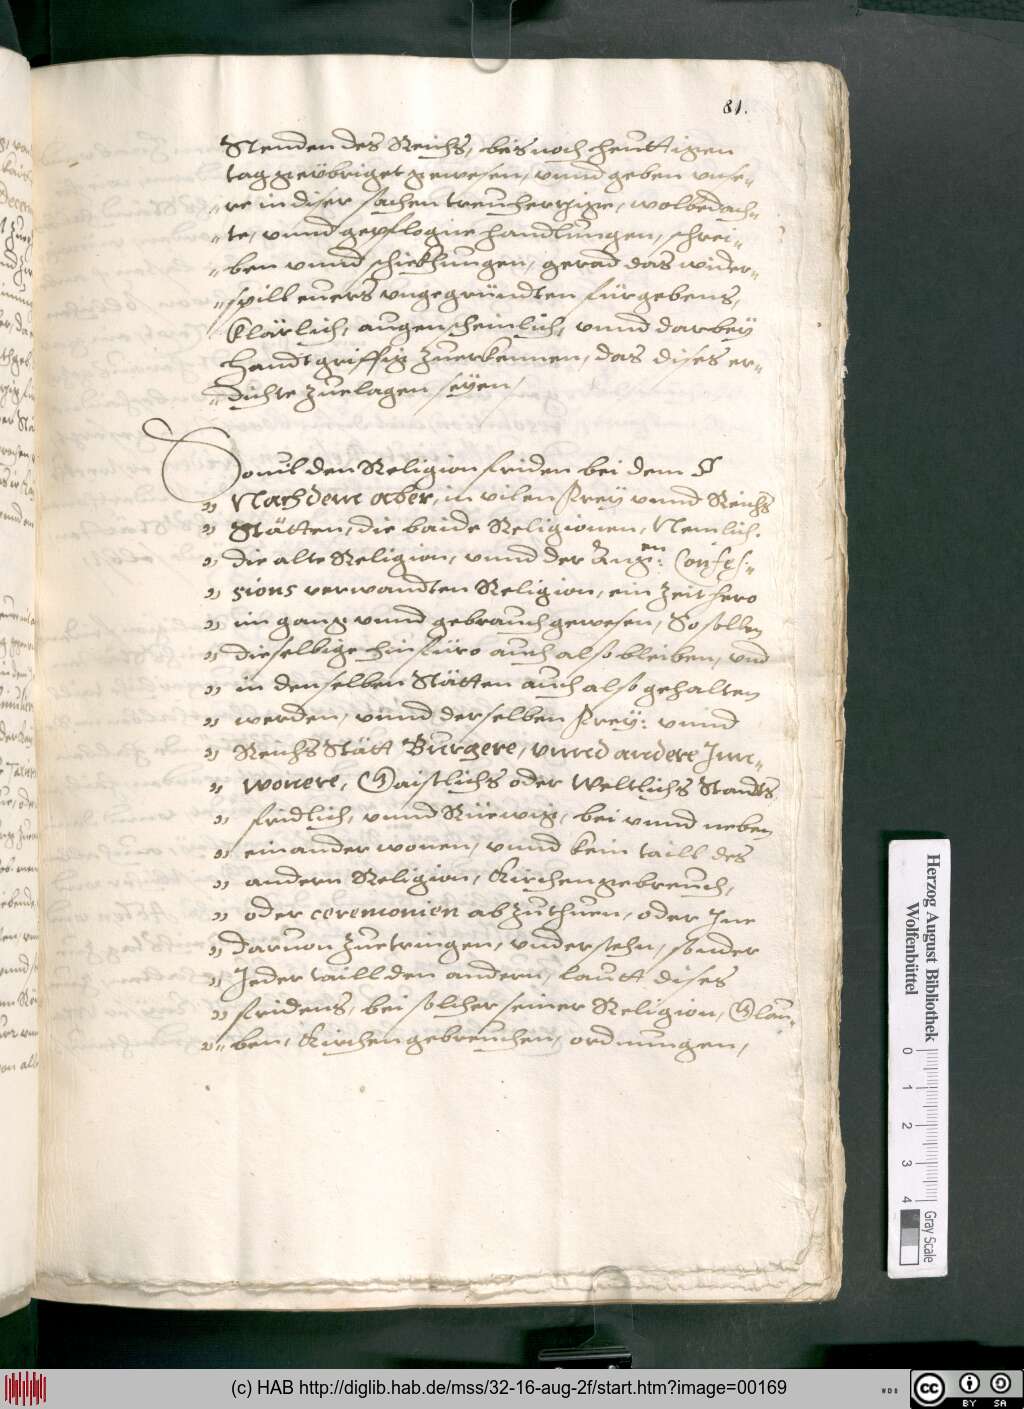 81.
Stenden des Reichs, bis noch heuttigen
tag geübriget gewesen, vnnd geben vnse¬
re in diser sachen treuhertzige, wolbedach¬
te, vnnd gepflogne handlungen, schrei¬
ben vnnd schickhungen, gerad das wider¬
spill euers vngegründten fürgebens,
Klärlich, augenscheinlich, vnnd darbey
handtgriffig zuerkennen, das dises er¬
dichte zuelagen seyen,
Souil den Religion friden bei dem §
Nachdem aber, in vilen Frey vnnd Reichs
Stätten, die baide Religionen, Nemlich.
die alte Religion, vnnd der Aug:en Confes¬
sions verwandten Religion, ein Zeit hero
im gang vnnd gebrauch gewesen, So sollen
dieselbige hinfüro auch also bleiben, vnd
in denselben Stätten auch also gehalten
werden, vnnd derselben Frey: vnnd
Reichs Stätt Burgere, vnnd andere Inn¬
wonere, Gaistlichs oder Weltlichs Standts
fridlich, vnnd Rüewig, bei vnnd neben
einander wonen, vnnd kein taill des
andern Religion, Kirchengebreuch,
oder ceremonien abzuthuen, oder Ine
daruon zuetringen, vnderstehn, sonder
Jeder taill den andern, lautt dises
fridens, bei solcher seiner Religion, Glau¬
ben, Kirchengebreuchen, ordnungen,
Herzog August Bibliothek
Wolfenbüttel
0 1 2 3 4
Gray Scale
(c) HAB http://diglib.hab.de/mss/32-16-aug-2f/start.htm?image=00169
WDB
cc BY SA